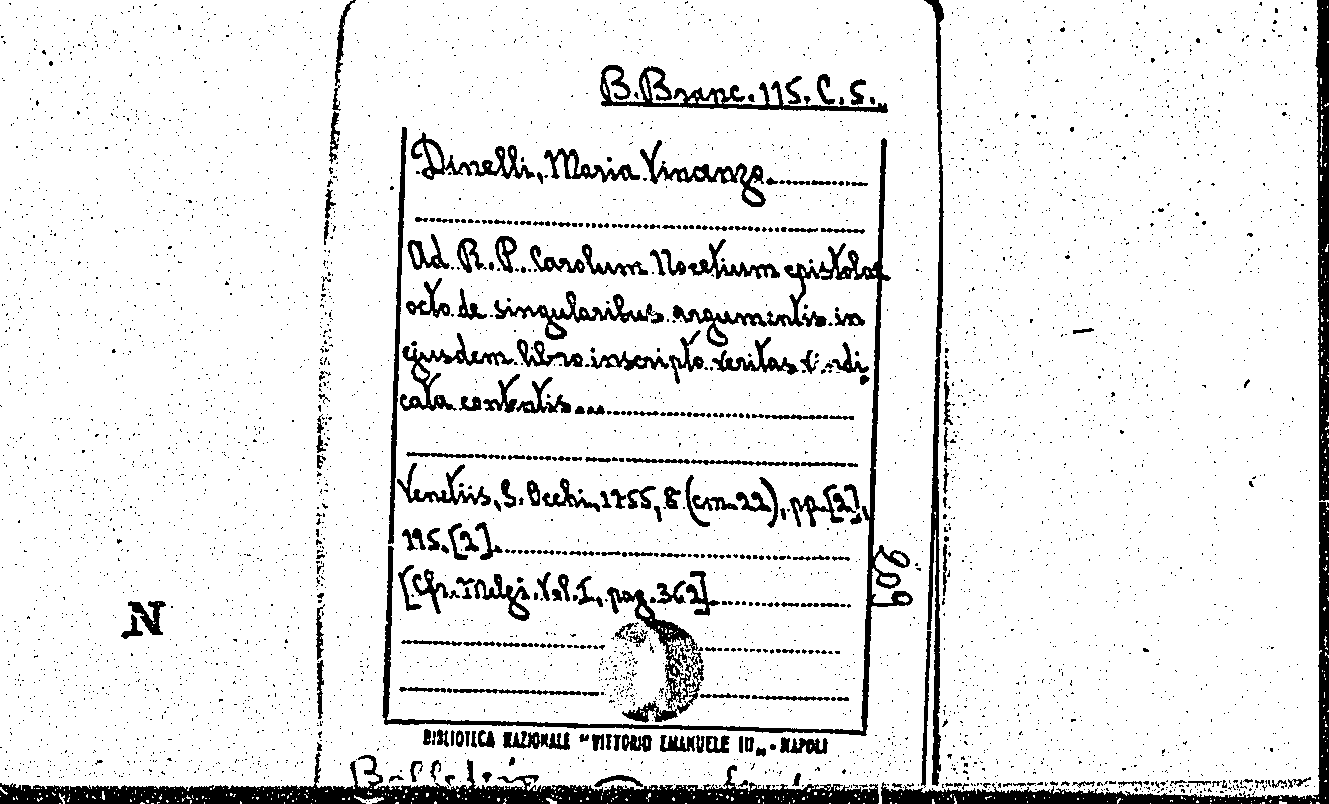 B. Branc. 115. C. 5.
Dinelli, Maria Vincenzo.
Ad R. P. Carolum Nocetium epistolae
octo de singularibus argumentis in
ejusdem libro inscripto veritas vindi
cata contentis...
Venetiis, S. Occhi, 1755, 8° (cm. 22), pp. [2],
195, [2].
[Cfr. Melzi. Vol. I, pag. 362]
209
N
BIBLIOTECA NAZIONALE "VITTORIO EMANUELE III„ - NAPOLI